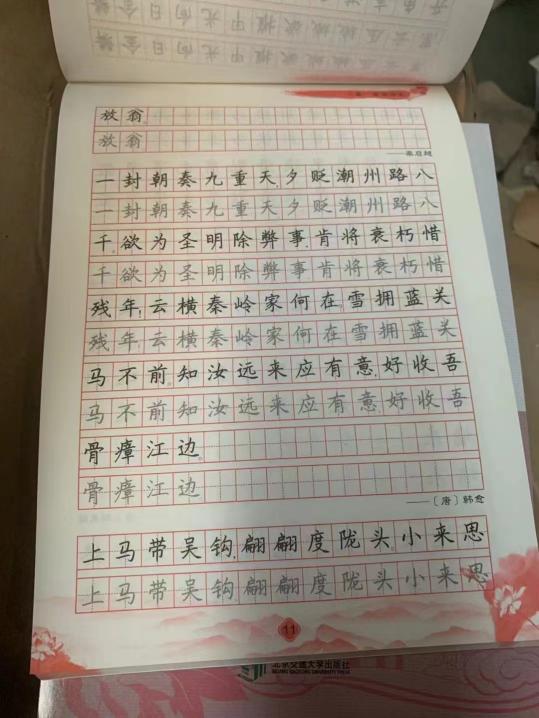 放翁
放翁
——梁启超
一封朝奏九重天,夕贬潮州路八
一封朝奏九重天,夕贬潮州路八
千。欲为圣明除弊事,肯将衰朽惜
千。欲为圣明除弊事,肯将衰朽惜
残年!云横秦岭家何在?雪拥蓝关
残年!云横秦岭家何在?雪拥蓝关
马不前。知汝远来应有意,好收吾
马不前。知汝远来应有意,好收吾
骨瘴江边。
骨瘴江边。
——〔唐〕韩愈
上马带吴钩,翩翩度陇头。小来思
上马带吴钩,翩翩度陇头。小来思
11
北京交通大学出版社
BEIJING JIAOTONG UNIVERSITY PRESS